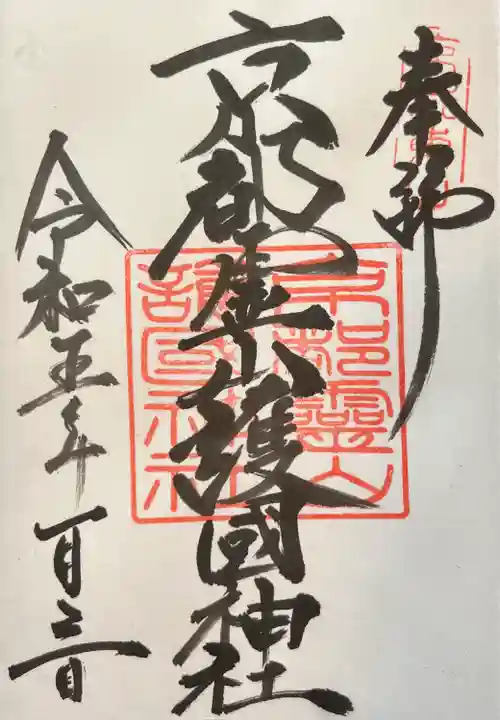 奉拝
京都霊山護國神社
京都靈山
護國神社
令和五年一月三日